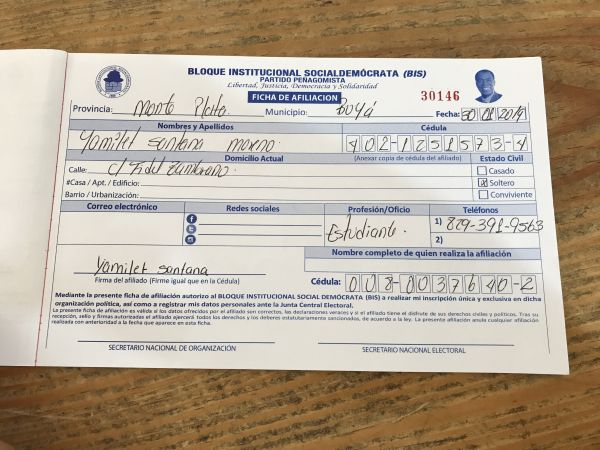 BLOQUE INSTITUCIONAL SOCIALDEMÓCRATA (BIS)
PARTIDO PEÑAGOMISTA
Libertad, Justicia, Democracia y Solidaridad
FICHA DE AFILIACION
30146
Provincia: Monte Plata. Municipio: Boyá Fecha: 30 01 2019
Nombres y Apellidos Cédula
Yamilet Santana Moreno. 402-1251573-4
Domicilio Actual (Anexar copia de cédula del afiliado) Estado Civil
Calle: C/ Fidel Zambrano.
Casado
#Casa / Apt. / Edificio: X Soltero
Barrio / Urbanización: Conviviente
Correo electrónico Redes sociales Profesión/Oficio Teléfonos
Estudiante. 1) 829-391-9563
2)
Nombre completo de quien realiza la afiliación
Yamilet Santana
Firma del afiliado (Firme igual que en la Cédula) Cédula: 008-0037640-2
Mediante la presente ficha de afiliación autorizo al BLOQUE INSTITUCIONAL SOCIAL DEMÓCRATA (BIS) a realizar mi inscripción única y exclusiva en dicha
organización política, así como a registrar mis datos personales ante la Junta Central Electoral.
La presente ficha de afiliación es válida si los datos ofrecidos por el afiliado son correctos, las declaraciones veraces y si el afiliado tiene el disfrute de sus derechos civiles y políticos. Tras su
recepción, sello y firmas autorizadas el afiliado ejercerá todos los derechos y los deberes estatutariamente sancionados, de acuerdo a la ley. La presente afiliación anula cualquier afiliación
realizada con anterioridad a la fecha que aparece en esta ficha.
SECRETARIO NACIONAL DE ORGANIZACIÓN SECRETARIO NACIONAL ELECTORAL